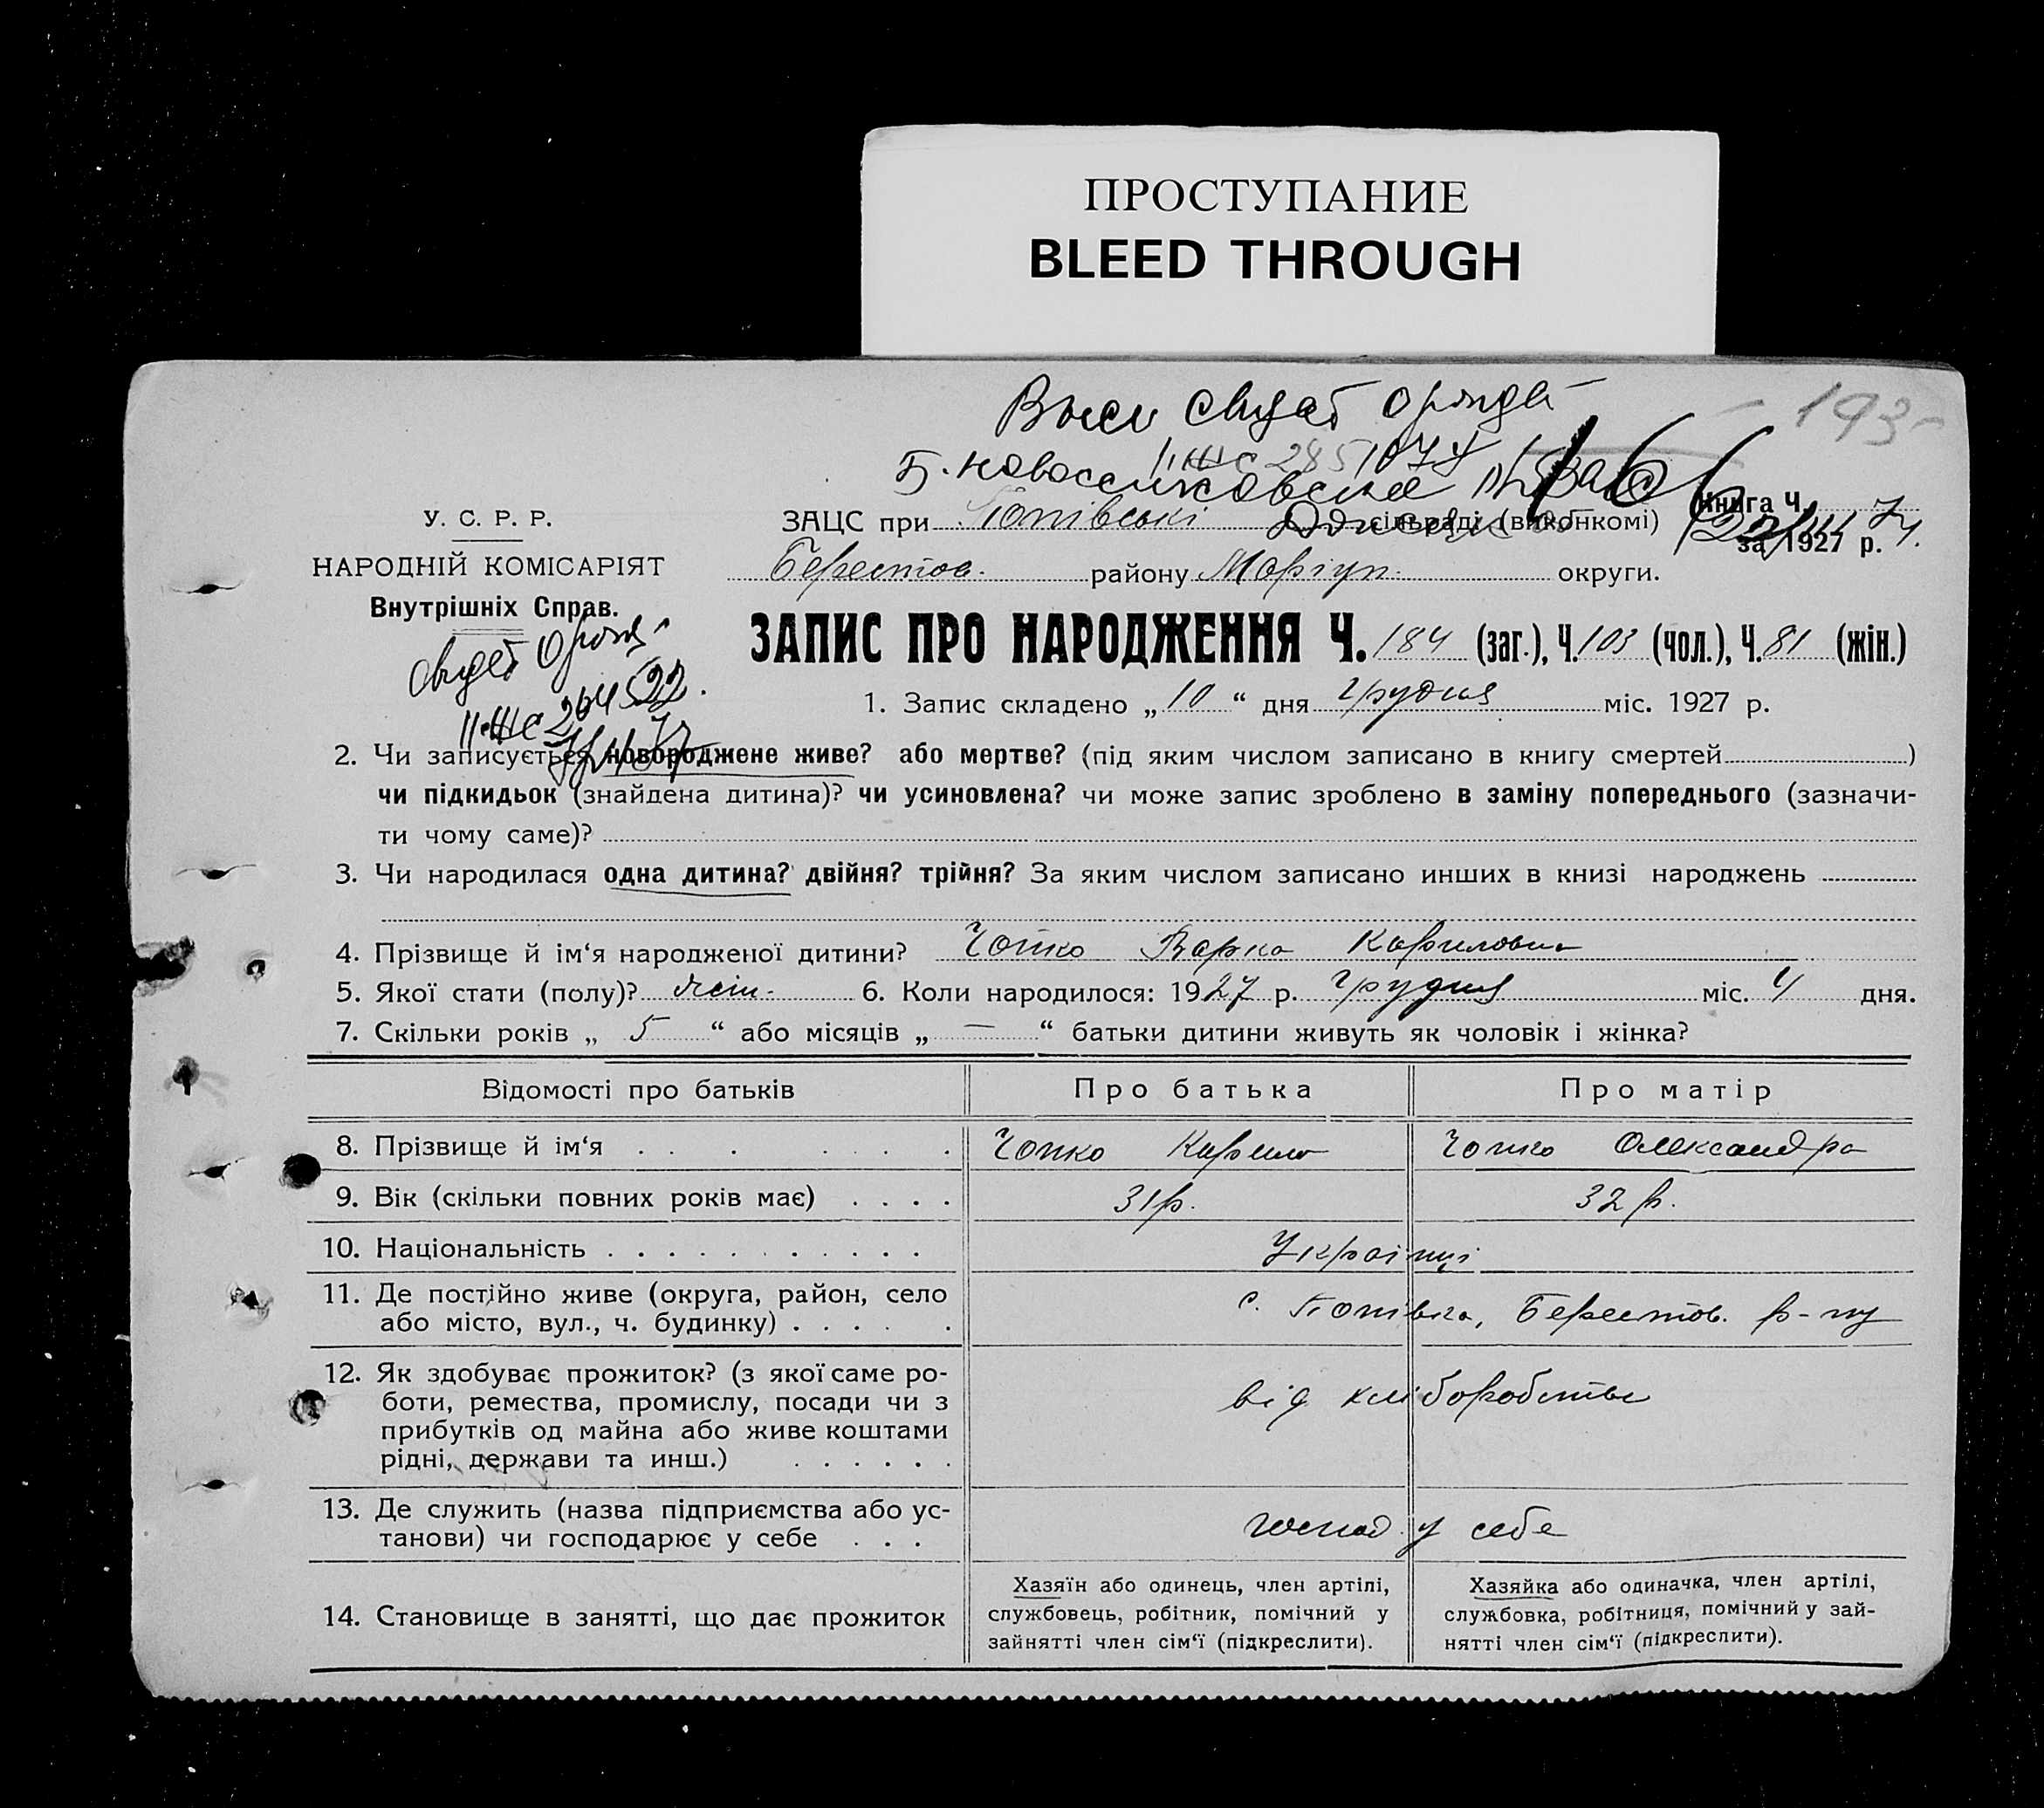 ПРОСТУПАНИЕ
BLEED THROUGH
193
У. С. Р. Р.
НАРОДНІЙ КОМІСАРІЯТ
Внутрішніх Справ.
264522
ЗАЦС при Попівські сільраді (виконкомі)
Книга Ч.
за 1927 р.
Берестов. району Маріуп. округи.
ЗАПИС ПРО НАРОДЖЕННЯ Ч. 184 (заг.), Ч. 103 (чол.), Ч. 81 (жін.)
1. Запис складено „ 10 “ дня грудня міс. 1927 р.
2. Чи записується новороджене живе? або мертве? (під яким числом записано в книгу смертей )
чи підкидьок (знайдена дитина)? чи усиновлена? чи може запис зроблено в заміну попереднього (зазначи-
ти чому саме)?
3. Чи народилася одна дитина? двійня? трійня? За яким числом записано инших в книзі народжень
4. Прізвище й ім‘я народженої дитини? Чопко Варка Кириловна
5. Якої стати (полу)? жін. 6. Коли народилося: 1927 р. грудня міс. 4 дня.
7. Скільки років „ 5 “ або місяців „ — “ батьки дитини живуть як чоловік і жінка?
Відомості про батьків Про батька Про матір
8. Прізвище й ім‘я Чопко Кирило Чопко Олександра
9. Вік (скільки повних років має) 31 р. 32 р.
10. Національність Українці
11. Де постійно живе (округа, район, село
або місто, вул., ч. будинку) с. Попівка, Берестов. р-ну
12. Як здобуває прожиток? (з якої саме ро-
боти, ремества, промислу, посади чи з
прибутків од майна або живе коштами
рідні, держави та инш.) від хліборобства
13. Де служить (назва підприємства або ус-
танови) чи господарює у себе господ. у себе
14. Становище в занятті, що дає прожиток
Хазяїн або одинець, член артілі,
службовець, робітник, помічний у
зайнятті член сім‘ї (підкреслити).
Хазяйка або одиначка, член артілі,
службовка, робітниця, помічний у зай-
нятті член сім‘ї (підкреслити).